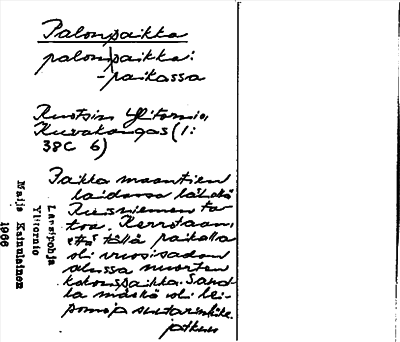 Palonpaikka
palom|paikka:
-paikassa
Ruotsin Ylitornio,
Kuvakangas (1:
38C 6)
Paikka maantien
laidassa lähellä
Kuusniemen ta-
loa. Kerrotaan,
että tällä paikalla
oli vuosisadan
alussa nuorten
kokouspaikka. Sand-
la mäskä oli lei-
pomo ja suutarinliike.
jatkuu
Länsipohja
Ylitornio
Maija Kainulainen
1966